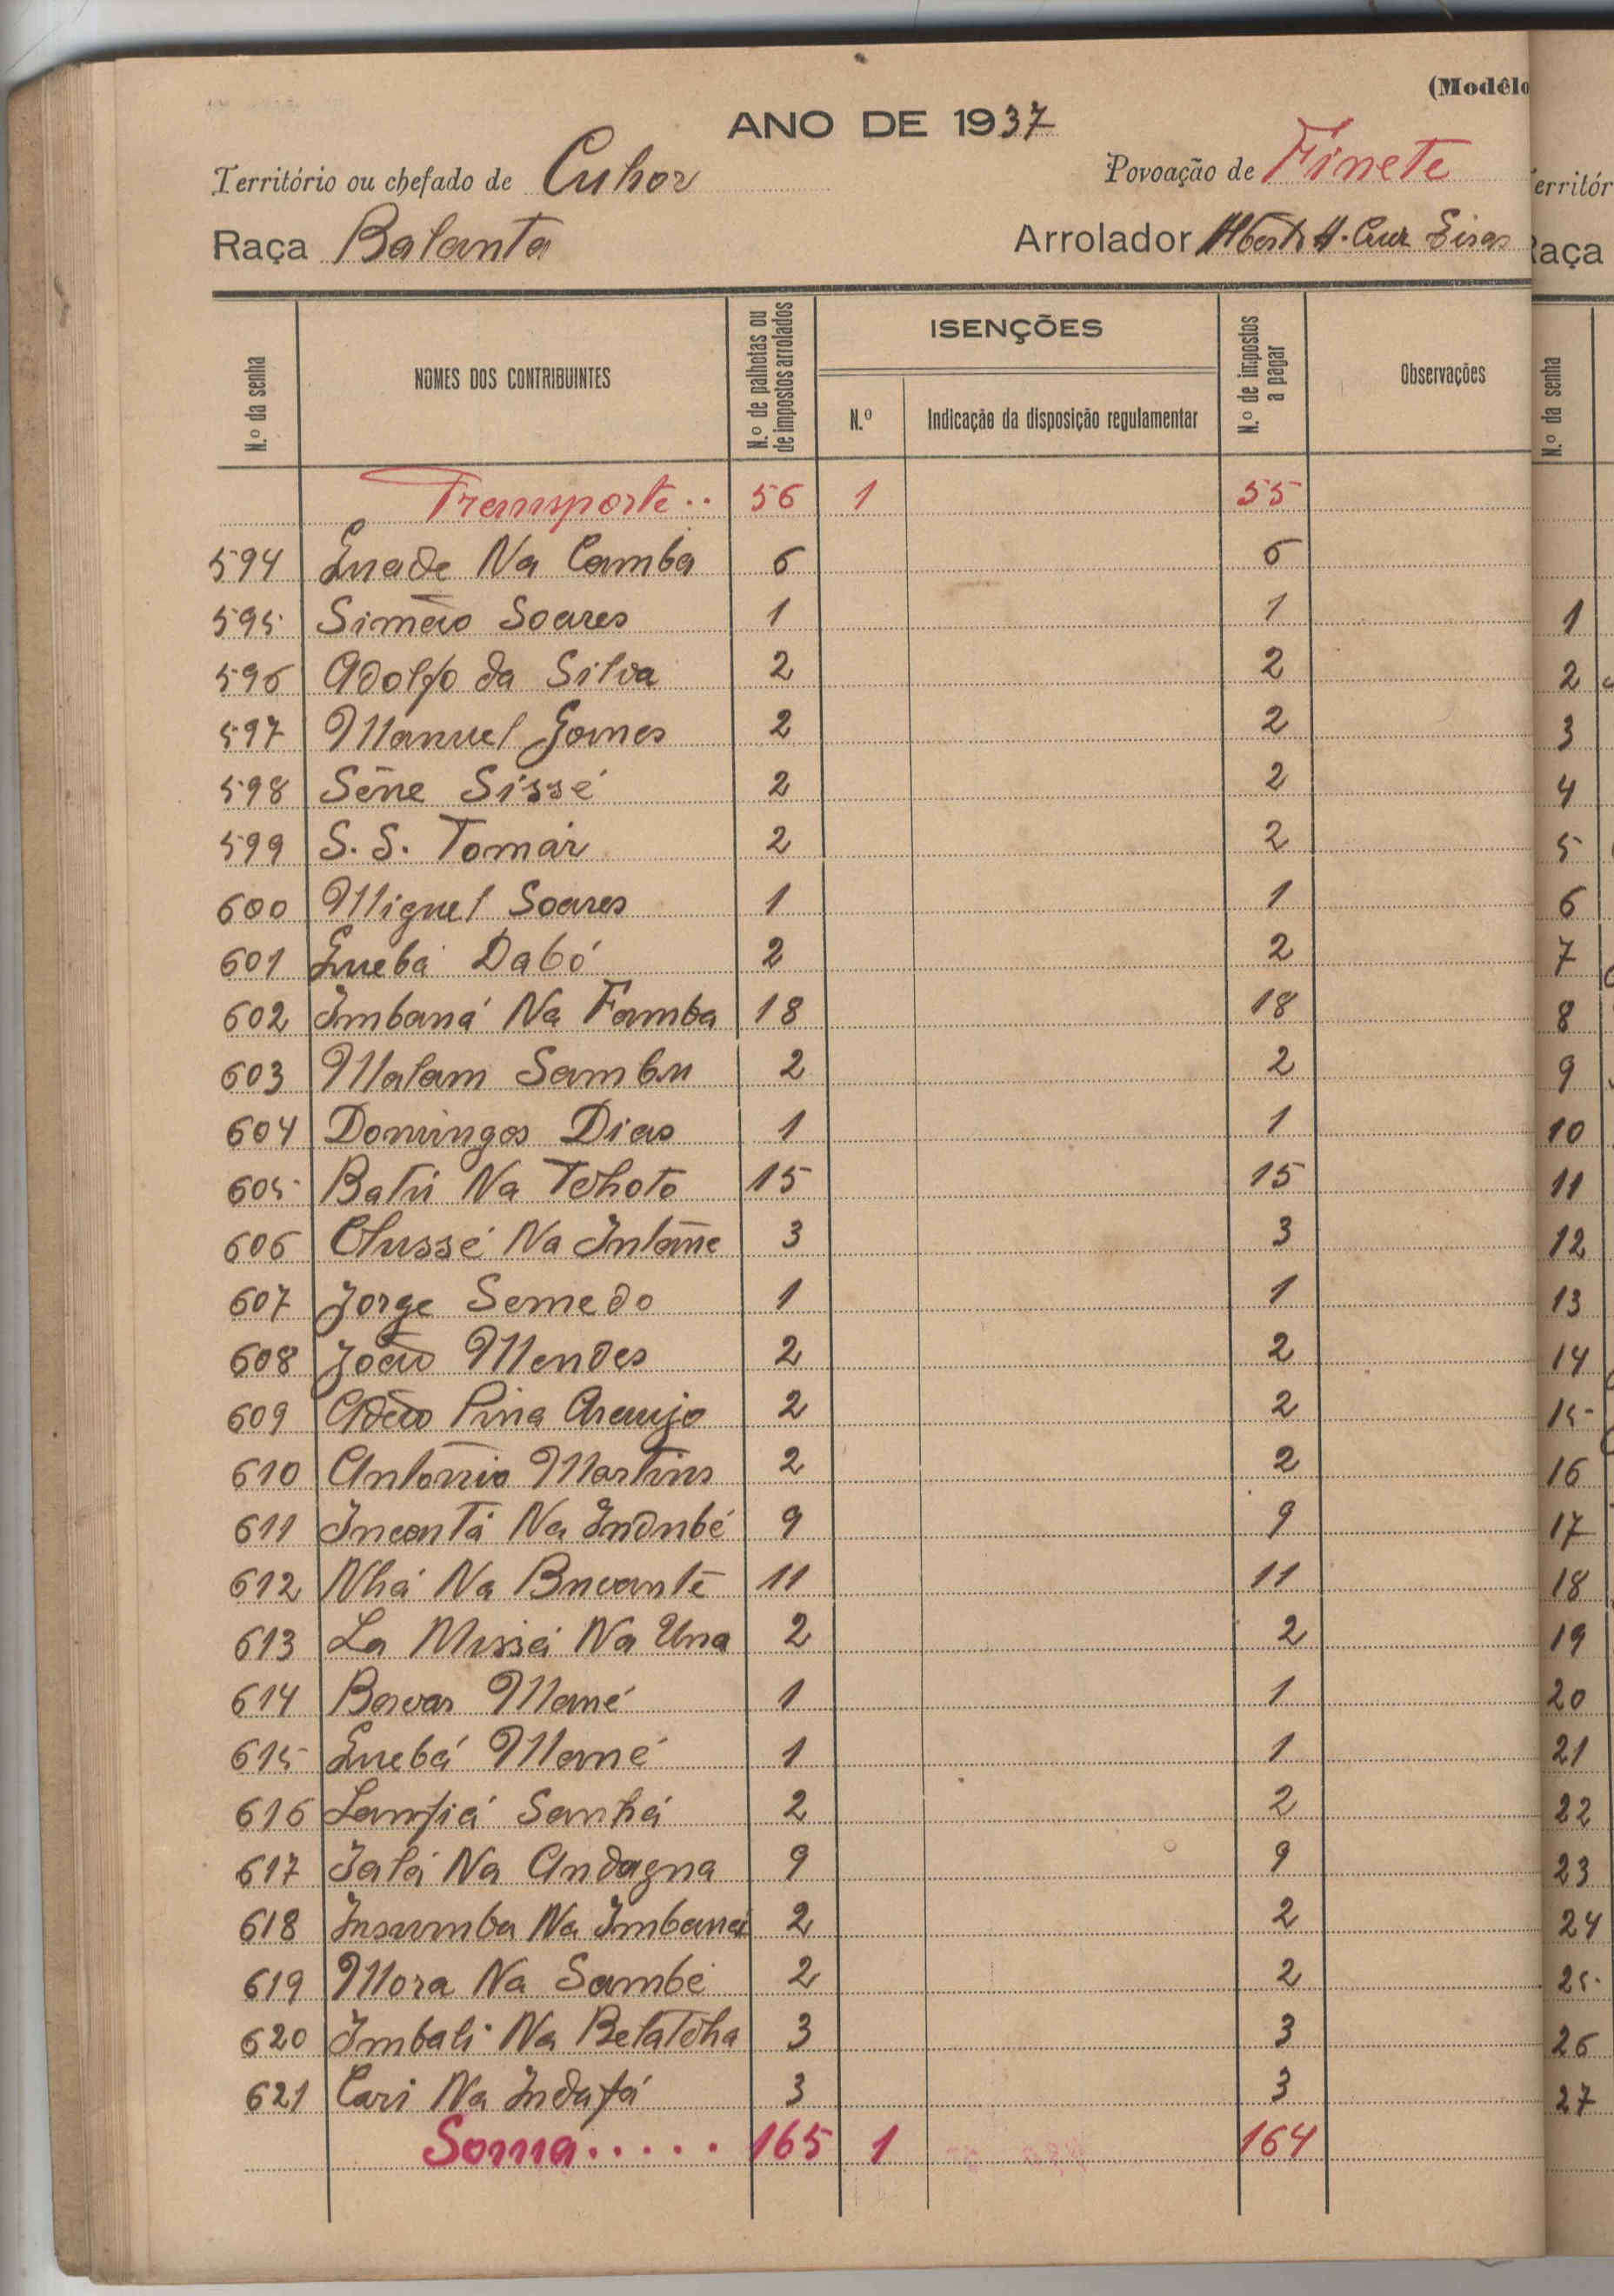 (Modêlo
ANO DE 1937
Território ou chefado de Cuhor Povoação de Finete
Raça Balanta Arrolador A. Cruz
N.º da senha NOMES DOS CONTRIBUINTES N.º de palhotas ou de impostos arrolados ISENÇÕES N.º Indicação da disposição regulamentar N.º de impostos a pagar Observações
Transporte.. 56 1 55
594 Quade Na Camba 6 6
595 Simão Soares 1 1
596 Adolfo da Silva 2 2
597 Manuel Gomes 2 2
598 Séne Sissé 2 2
599 S. S. Tomár 2 2
600 Miguel Soares 1 1
601 Quebá Dabó 2 2
602 Imbaná Na Famba 18 18
603 Malam Sambu 2 2
604 Domingos Dias 1 1
605 Batú Na Tchoto 15 15
606 Clussé Na Intãne 3 3
607 Jorge Semedo 1 1
608 João Mendes 2 2
609 Adão Pina Araujo 2 2
610 António Martins 2 2
611 Incontá Na Indubé 9 9
612 Nhá Na Bucante 11 11
613 La Missá Na Una 2 2
614 Bacar Mané 1 1
615 Quebá Mané 1 1
616 Lanfiá Sanhá 2 2
617 Jalá Na Andagna 9 9
618 Insumba Na Imbaná 2 2
619 Mora Na Sambé 2 2
620 Imbali Na Belatcha 3 3
621 Cari Na Indafá 3 3
Soma..... 165 1 164
erritór
aça
N.º da senha
1
2
3
4
5
6
7
8
9
10
11
12
13
14
15
16
17
18
19
20
21
22
23
24
25
26
27